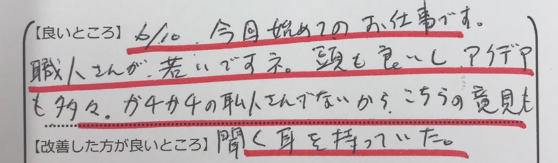 【良いところ】6/10、今回始めてのお仕事です。
職人さんが、若いですネ。頭も良いし、アイデア
も多々。ガチガチの職人さんでないから、こちらの意見も
【改善した方が良いところ】聞く耳を持っていた。